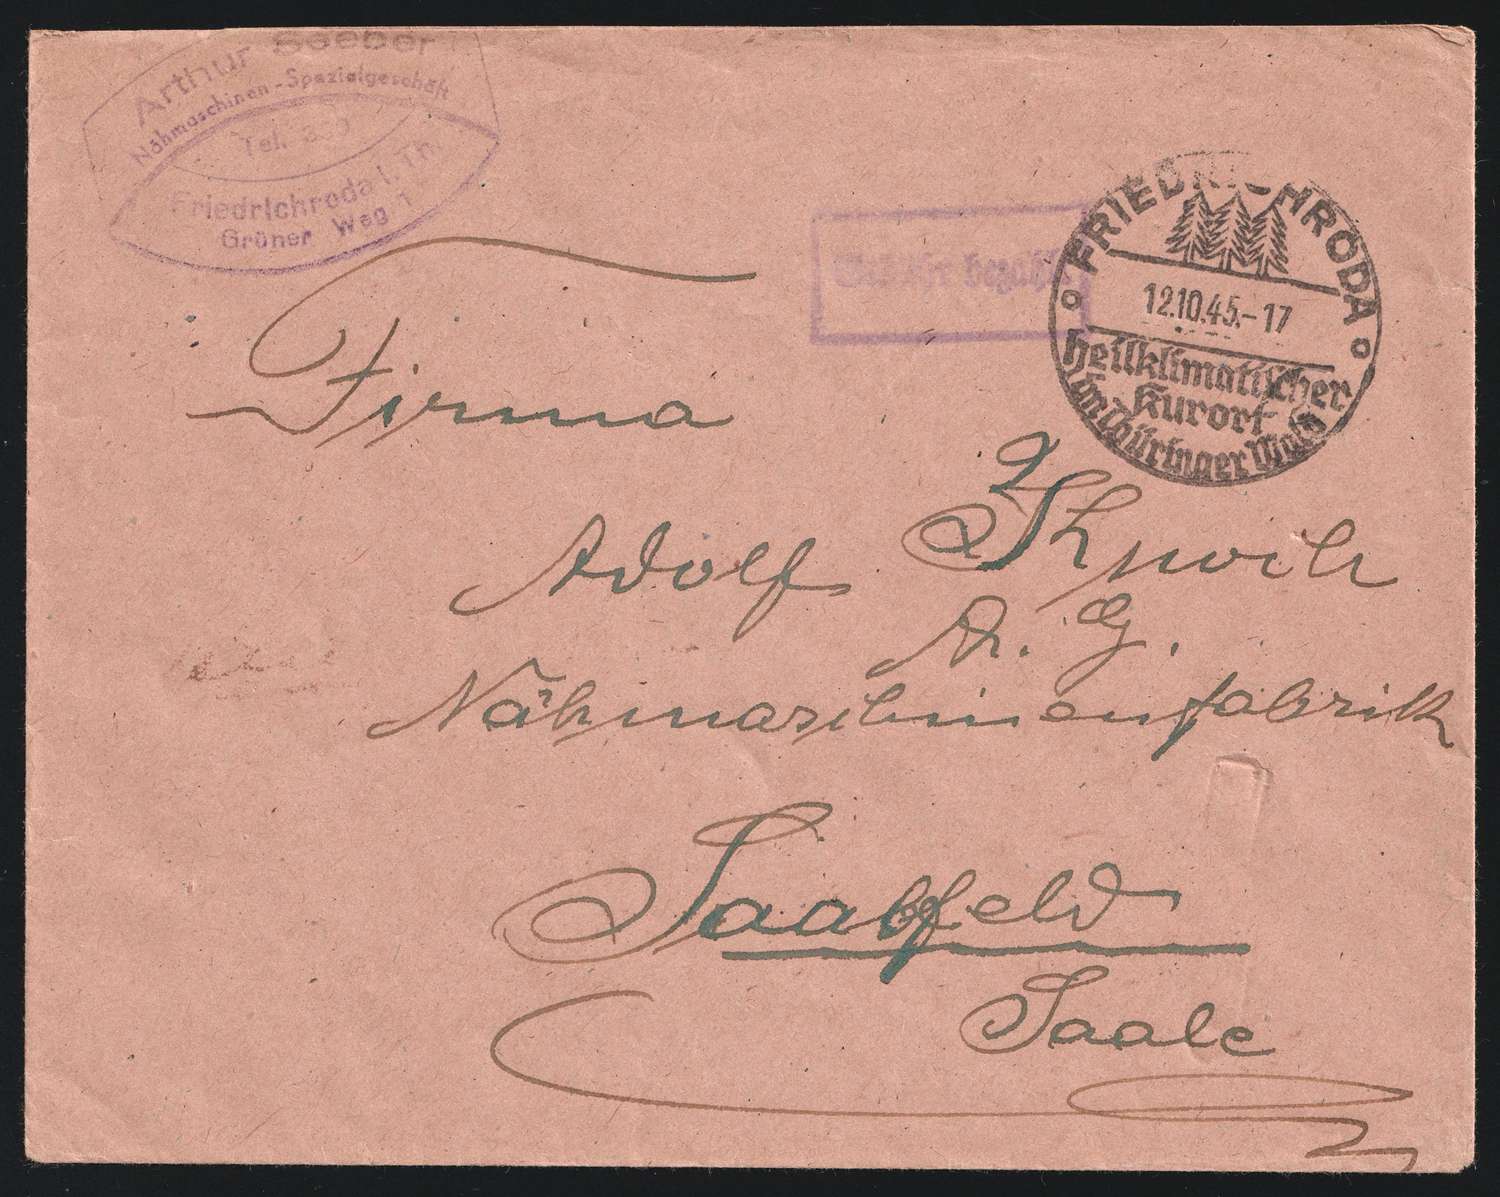 Arthur Seeber
Nähmaschinen-Spezialgeschäft
Tel.
Friedrichroda i. Th.
Grüner Weg 1
Gebühr bezahlt
FRIEDRICHRODA
12.10.45.-17
Heilklimatischer
Kurort
im Thüringer Wald
Firma
Adolf Knoch
A. G.
Nähmaschinenfabrik
Saalfeld
Saale